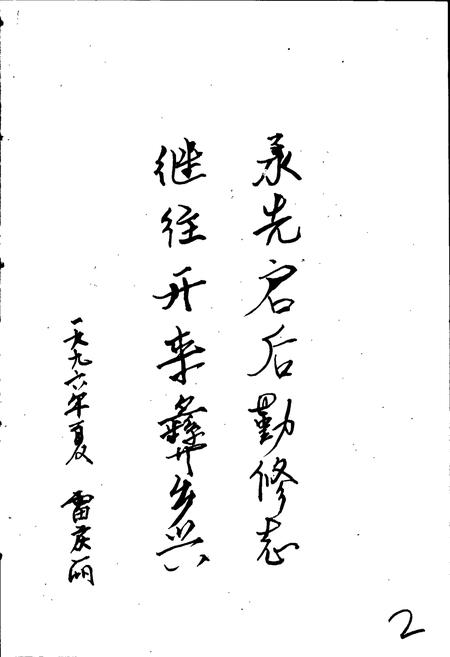 承先启后勤修志
继往开来彝乡兴
一九九六年夏 雷庆丽
2